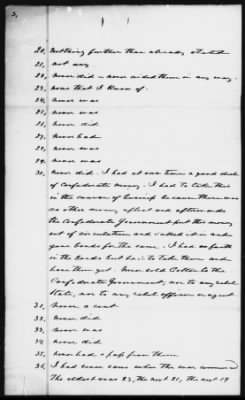 3,
20, Nothing further than already stated
21, not any
22, never did - never aided them in any way.
23, none that I know of.
24, never was
25, never was
26, never did
27, never had
28, never was
29, never was
30, never did. I had at one time a good deal
of Confederate money. I had to take this
in the course of because there was
no other money afloat and afterwards
the Confederate Government put this money
out of circulation and called it in and
gave bonds for the same. I had no faith
in the bonds but had to take them and
have them yet. Never sold Cotton to the
Confederate Government, nor to any rebel
State, nor to any rebel officer or agent
31, never a cent
32, never did
33, never was
34, never did
35, never had a pass from them
36, I had seven sons when the war commenced
The oldest was 23, the next 21, the next 19